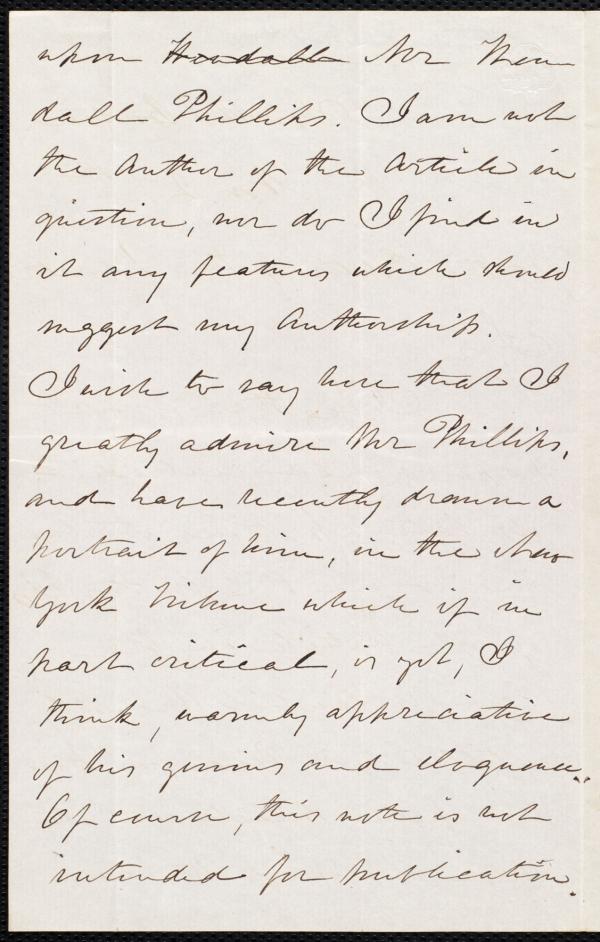 upon Wendall Mr Wen
dall Phillips. I am not
the Author of the Article in
question, nor do I find in
it any features which should
suggest my Authorship.
I wish to say here that I
greatly admire Mr Phillips,
and have recently drawn a
portrait of him, in the New
York Tribune which if in
part critical, is yet, I
think, warmly appreciative
of his genius and eloquence.
Of course, this note is not
intended for publication.